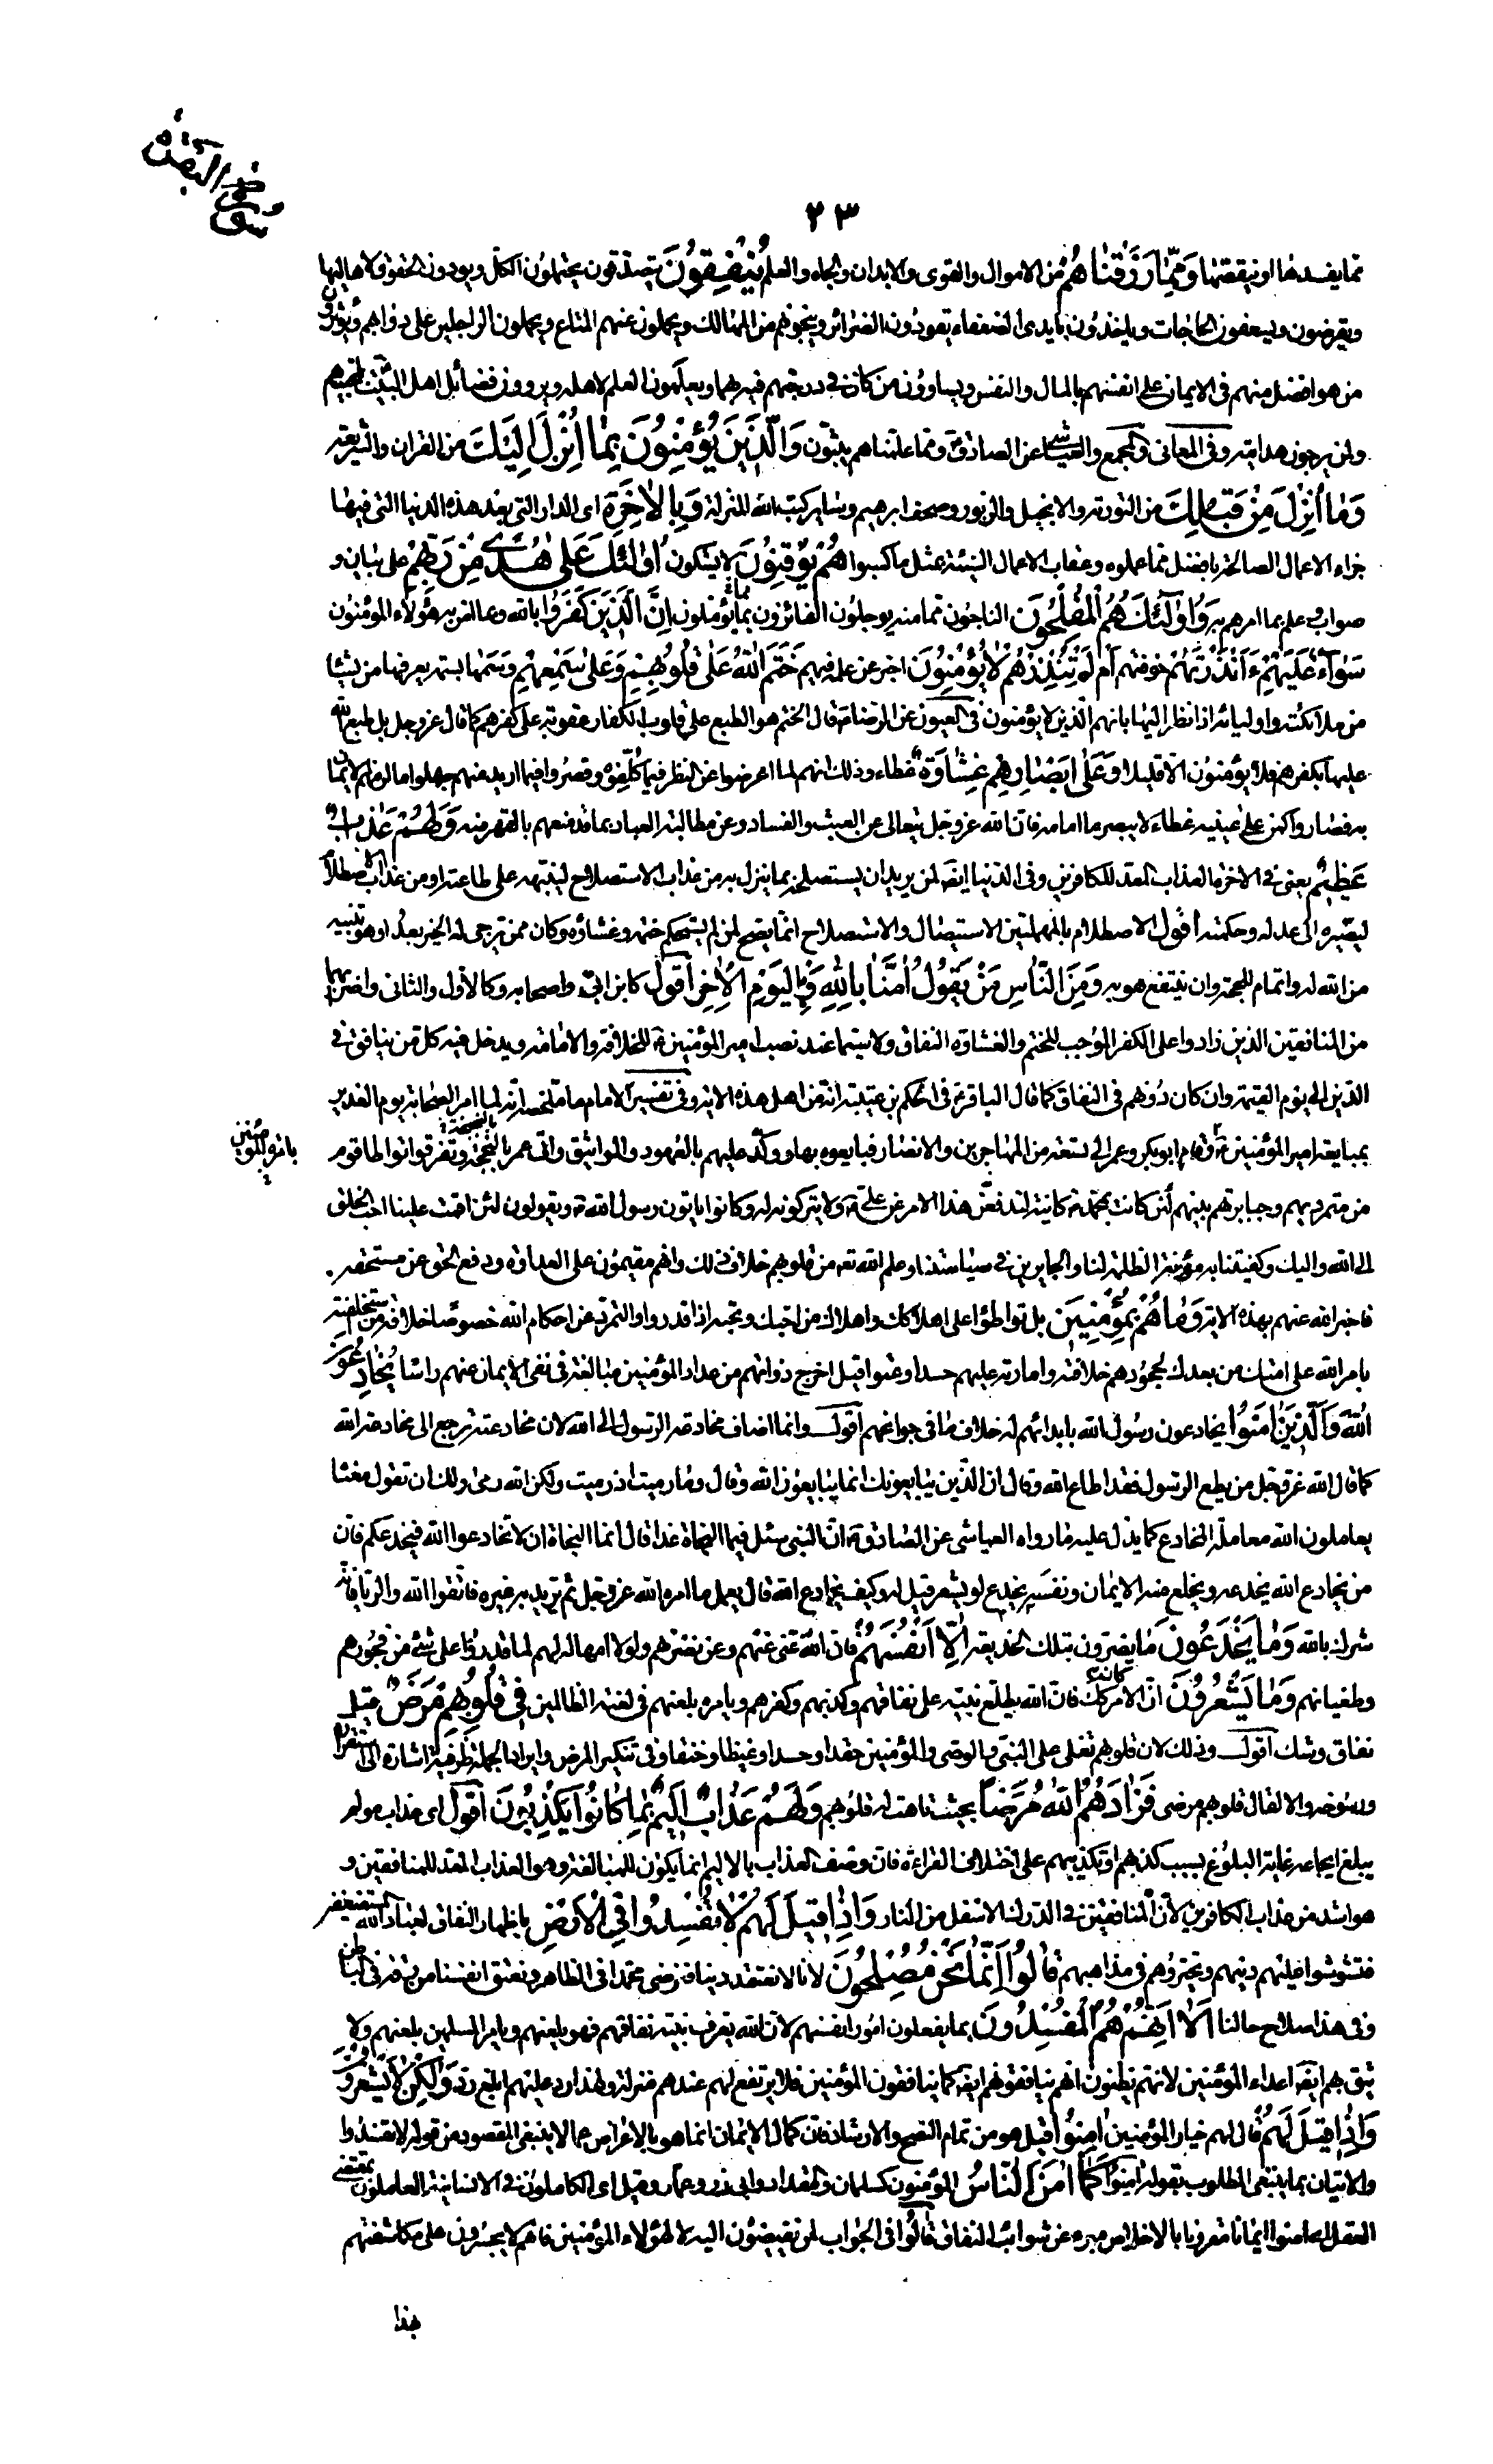 سورة البقرة
٢٣
مما يفسدها او ينقصها وَمِمّٰا رَزَقْنٰاهُمْ من الاموال والقوى والابدان والجاه والعلم يُنْفِقُونَ يتصدقون يحتملون الكل ويودون الحقوق لاهاليها
ويقرضون ويسعفون الحاجات وياخذون بايدى الضعفاء يقودون الضرائر وينجونهم من المهالك ويحملون عنهم المتاع ويحملون الراجلين على دوابهم ويؤثرون
من هو افضل منهم فى الايمان على انفسهم بالمال والنفس ويساوون من كان فى درجتهم فيه بهما ويعلمون العلم لاهله ويروون فضائل اهل البيت لمحبيهم
ولمن يرجون هدايته وفى المعانى والمجمع والعياشى عن الصادق ومما علمناهم يبثون وَالَّذِينَ يُؤْمِنُونَ بِمٰا اُنْزِلَ اِلَيْكَ من القران والشريعة
وَمٰا اُنْزِلَ مِنْ قَبْلِكَ من التورية والانجيل والزبور وصحف ابرهيم وساير كتب الله المنزلة وَبِالْاٰخِرَةِ اى الدار التى بعد هذه الدنيا التى فيها
جزاء الاعمال الصالحة بافضل مما عملوه وعقاب الاعمال السيئة بمثل ما كسبوا هُمْ يُوقِنُونَ لا يشكون اُولٰئِكَ عَلىٰ هُدًى مِنْ رَبِّهِمْ على بيان و
صواب وعلم بما امرهم به وَاُولٰئِكَ هُمُ الْمُفْلِحُونَ الناجون مما منه يوجلون الفائزون بما يؤملون اِنَّ الَّذِينَ كَفَرُوا بالله وبما امن به هؤلاء المؤمنون
سَوٰاءٌ عَلَيْهِمْ ءَاَنْذَرْتَهُمْ خوفتهم اَمْ لَمْ تُنْذِرْهُمْ لاٰ يُؤْمِنُونَ اخبر عن علمه فيهم خَتَمَ اللهُ عَلىٰ قُلُوبِهِمْ وَعَلىٰ سَمْعِهِمْ وسمها بسمة يعرفها من يشا
من ملائكته واوليائه اذا نظر اليها بانهم الذين لا يؤمنون فى العيون عن الرضا قال الختم هو الطبع على قلوب الكفار عقوبة على كفرهم كما قال عز وجل بل طبع الله
عليها بكفرهم فلا يؤمنون الا قليلا وَعَلىٰ اَبْصٰارِهِمْ غِشٰاوَةٌ غطاء وذلك انهم لما اعرضوا عن النظر فيما كلفوه وقصروا فيما اريد منهم جهلوا ما لزمهم الايمان
به فصاروا كمن على عينيه غطاء لا يبصر ما امامه فان الله عز وجل يتعالى عن العبث والفساد وعن مطالبة العباد بما قد منعهم بالقهر منه وَلَهُمْ عَذٰابٌ
عَظِيمٌ يعنى فى الاخرة العذاب المعد للكافرين وفى الدنيا ايضا لمن يريد ان يستصلحه بما ينزل به من عذاب الاستصلاح لينبهه على طاعته او من عذاب الاصطلام
ليصيره الى عدله وحكمته أقول الاصطلام بالمهملتين الاستيصال والاستصلاح انما يصح لمن لم يستحكم ختمه وغشاؤه وكان ممن يرجى له الخير بعد او هو تنبيه
من الله له واتمام للحجة وان ينتفع هو به وَمِنَ النّٰاسِ مَنْ يَقُولُ اٰمَنّٰا بِاللهِ وَبِالْيَوْمِ الْاٰخِرِ أقول كابن ابى واصحابه وكالاول والثانى واضرابهما
من المنافقين الذين زادوا على الكفر الموجب للختم والغشاوة النفاق ولا سيما عند نصب امير المؤمنين للخلافة والامامة ويدخل فيه كل من ينافق فى
الدين الى يوم القيمة وان كان دونهم فى النفاق كما قال الباقر فى الحكم بن عتيبة انه من اهل هذه الاية وفى تفسير الامام ما ملخصه انه لما امر الصحابة يوم الغدير
بمبايعة امير المؤمنين وقام ابو بكر وعمر الى تسعة من المهاجرين والانصار فبايعوه بها ووكد عليهم بالعهود والمواثيق واتى عمر بالبخبخة وتفرقوا تواطا قوم
بامرة المؤمنين
من متمرديهم وجبابرتهم بينهم لئن كانت بمحمد كائنة لندفعن هذا الامر عن على ولا يتركونه له وكانوا ياتون رسول الله ويقولون لئن اقمت علينا احب الخلق
الى الله واليك وكفيتنا به مؤنة الظلمة لنا والجايرين فى سياستنا وعلم الله تعه من قلوبهم خلاف ذلك وانهم مقيمون على العداوة ودفع الحق عن مستحقه .
فاخبر الله عنهم بهذه الاية وَمٰا هُمْ بِمُؤْمِنِينَ بل تواطؤا على اهلاكك واهلاك من احبك وتحبه اذا قدروا والتمرد عن احكام الله خصوصا خلافة من استخلفته
بامر الله على امتك من بعدك لجحودهم خلافته وامارته عليهم حسدا وعتوا قيل اخرج ذواتهم من عداد المؤمنين مبالغة فى نفى الايمان عنهم راسا يُخٰادِعُونَ
اللهَ وَالَّذِينَ اٰمَنُوا يخادعون رسول الله بابدائهم له خلاف ما فى جوانحهم أقول وانما اضاف مخادعة الرسول الى الله لان مخادعته ترجع الى مخادعة الله
كما قال الله عز وجل من يطع الرسول فقد اطاع الله وقال ان الذين يبايعونك انما يبايعون الله وقال وما رميت اذ رميت ولكن الله رمى ولك ان تقول معنا
يعاملون الله معاملة المخادع كما يدل عليه ما رواه العياشى عن الصادق ان النبى سئل فيما النجاة غدا قال انما النجاة ان لا تخادعوا الله فيخدعكم فان
من يخادع الله يخدعه ويخلع منه الايمان ونفسه يخدع لو يشعر قيل له وكيف يخادع الله قال يعمل ما امره الله عز وجل ثم يريد به غيره فاتقوا الله والريا فانه
شرك بالله وَمٰا يَخْدَعُونَ ما يضرون بتلك الخديعة اِلّٰا اَنْفُسَهُمْ فان الله غنى عنهم وعن نصرتهم ولولا امهاله لهم لما قدروا على شىء من فجورهم
وطغيانهم وَمٰا يَشْعُرُونَ ان الامر كذلك فان الله يطلع نبيه على نفاقهم وكذبهم وكفرهم ويامره بلعنهم فى لعنة الظالمين فِى قُلُوبِهِمْ مَرَضٌ قيل
نفاق وشك أقول وذلك لان قلوبهم تغلى على النبى والوصى والمؤمنين حقدا وحسدا وغيظا وخنقا وفى تنكير المرض وايراد الجملة ظرفية اشارة الى استقراره
ورسوخه والا لقال قلوبهم مرضى فَزٰادَهُمُ اللهُ مَرَضًا بحيث تاهت له قلوبهم وَلَهُمْ عَذٰابٌ اَلِيمٌ بِمٰا كٰانُوا يَكْذِبُونَ أقول اى عذاب مولم
يبلغ ايجاعه غاية البلوغ بسبب كذبهم او تكذيبهم على اختلاف القراءة فان وصف العذاب بالاليم انما يكون للمبالغة وهو العذاب المعد للمنافقين و
هو اشد من عذاب الكافرين لان المنافقين فى الدرك الاسفل من النار وَاِذٰا قِيلَ لَهُمْ لاٰ تُفْسِدُوا فِى الْاَرْضِ باظهار النفاق لعباد الله المستضعفين
فتشوشوا عليهم دينهم وتحيروهم فى مذاهبهم قٰالُوا اِنَّمٰا نَحْنُ مُصْلِحُونَ لانا لا نعتقد دينا فنرضى محمدا فى الظاهر ونعتق انفسنا من رقه فى الباطن
وفى هذا صلاح حالنا اَلاٰ اِنَّهُمْ هُمُ الْمُفْسِدُونَ بما يفعلون امور انفسهم لان الله يعرف نبيه نفاقهم فهو يلعنهم ويامر المسلمين بلعنهم ولا
يثق بهم ايضا اعداء المؤمنين لانهم يظنون انهم ينافقونهم ايضا كما ينافقون المؤمنين فلا يرتفع لهم عندهم منزلة ولهذا رد عليهم ابلغ رد وَلٰكِنْ لاٰ يَشْعُرُونَ
وَاِذٰا قِيلَ لَهُمْ قال لهم خيار المؤمنين اٰمِنُوا قيل هو من تمام النصح والارشاد فان كمال الايمان انما هو بالاعراض عما لا ينبغى المقصود من قوله لا تفسدوا
والاتيان بما ينبغى المطلوب بقوله امنوا كَمٰا اٰمَنَ النّٰاسُ المؤمنون كسلمان والمقداد وابى ذر وعمار وقيل اى الكاملون فى الانسانية العاملون بمقتضى
العقل اى امنوا ايمانا مقرونا بالاخلاص مبرء عن شوائب النفاق قٰالُوا فى الجواب لمن يفيضون اليه لا لهؤلاء المؤمنين فانهم لا يجسرون على مكاشفتهم
بهذا